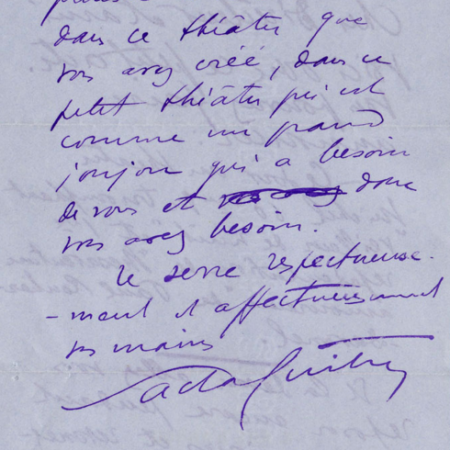 dans ce théâtre que
vous avez créé, dans ce
petit théâtre qui est
comme un grand
joujou qui a besoin
de vous et dont
vous avez besoin.
Je serre respectueuse-
-ment et affectueusement
vos mains
Sacha Guitry